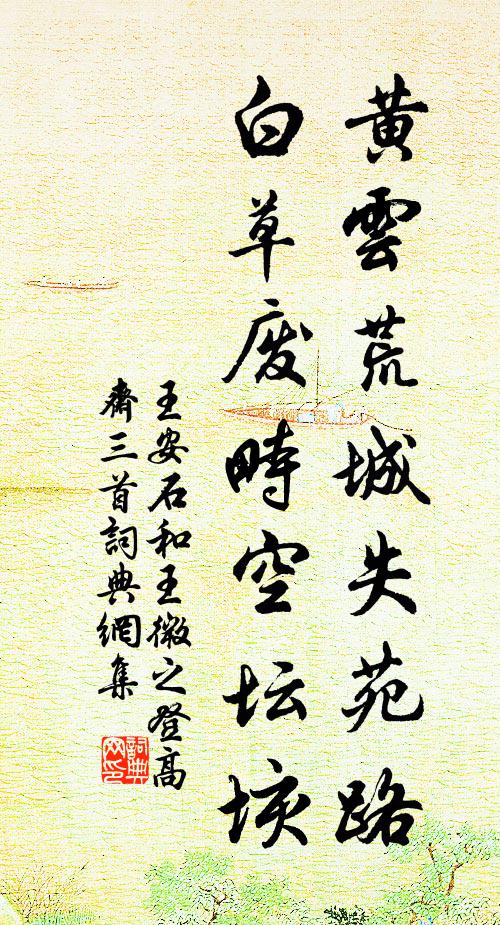 黃雲荒城失苑路
白草废畤空坛垓
王安石和王微之登高
齋三首詞典網集
詞典网印